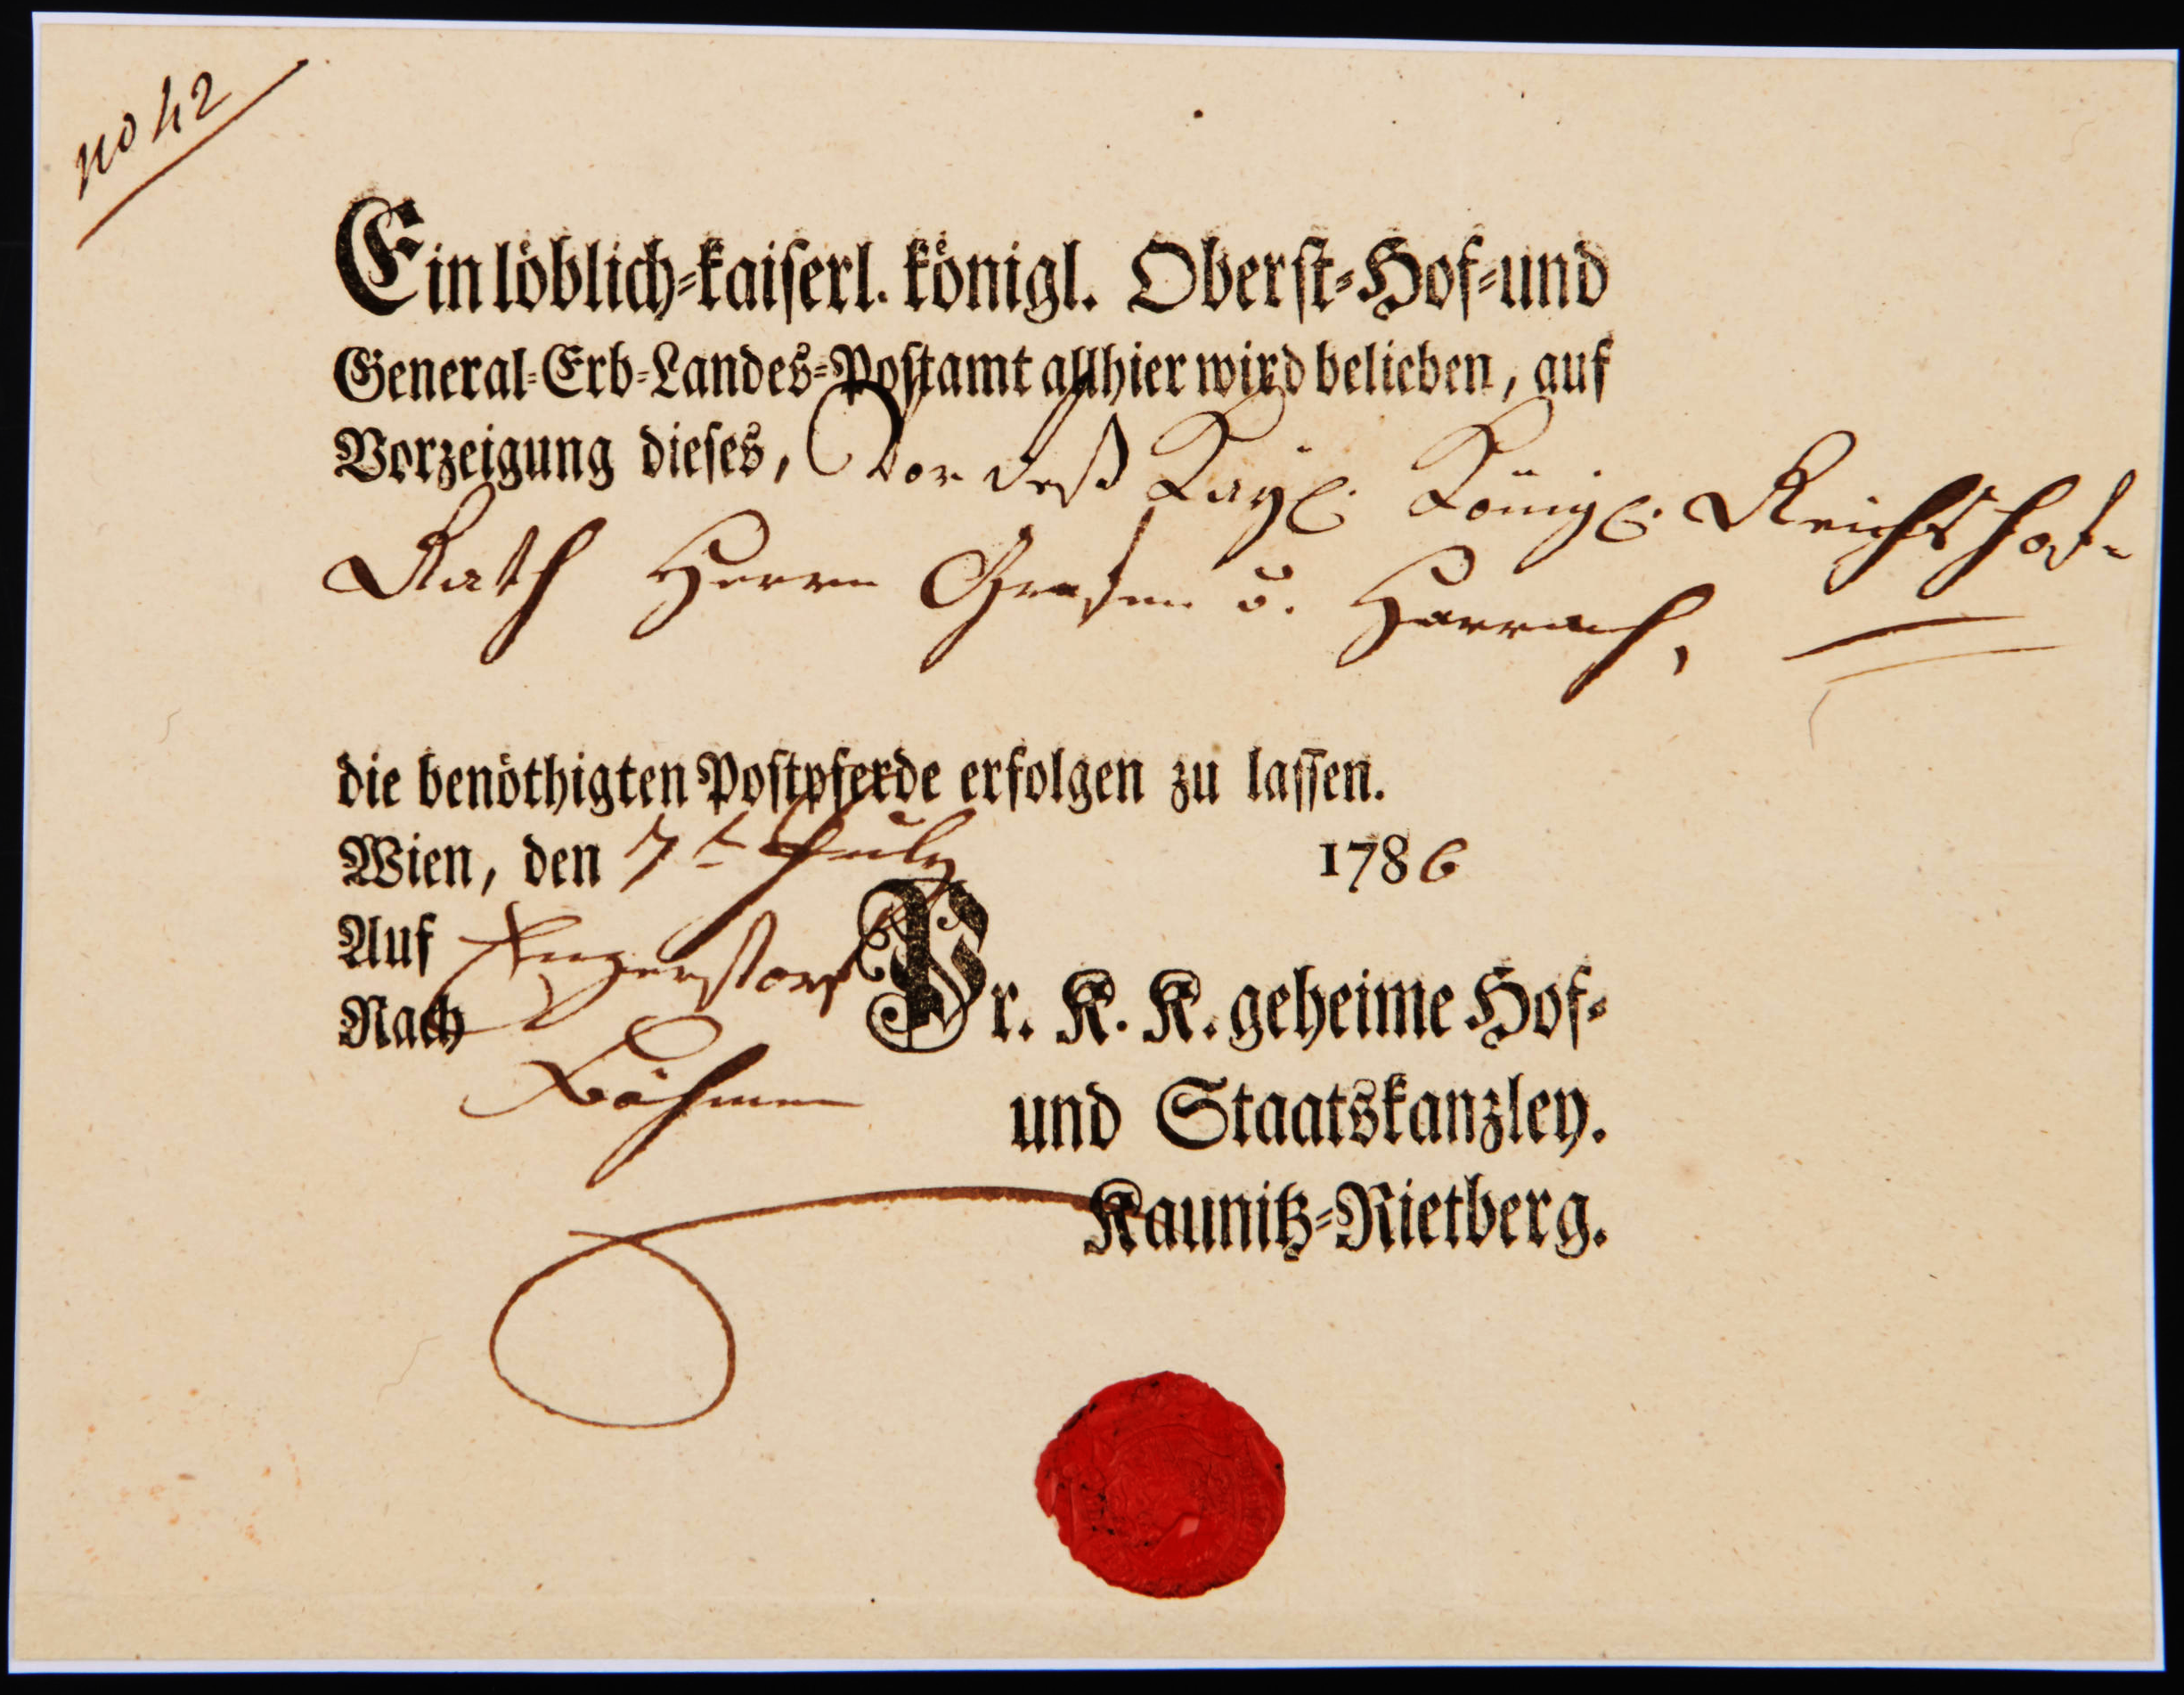 no 42
Ein löblich-kaiserl. königl. Oberst-Hof-und
General-Erb-Landes-Postamt allhier wird belieben, auf
Vorzeigung dieses, Vor deß Kayl. Königl. Reichs hof-
Rath Herrn Grafen v. Harrach,
die benöthigten Postpferde erfolgen zu lassen.
Wien, den 7t July 1786
Auf Enzerstorf
Nach Böhmen
Pr. K. K. geheime Hof-
und Staatskanzley.
Kaunitz-Rietberg.